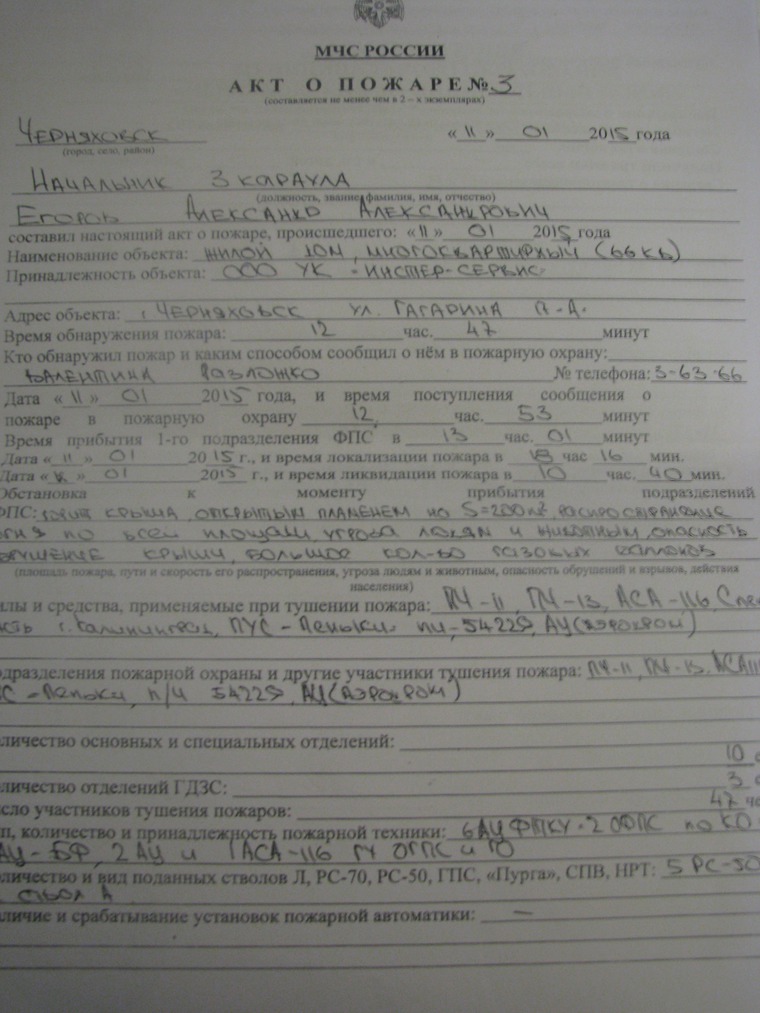 МЧС РОССИИ
АКТ О ПОЖАРЕ № 3
(составляется не менее чем в 2 – х экземплярах)
Черняховск « 11 » 01 2015 года
(город, село, район)
Начальник 3 караула
(должность, звание, фамилия, имя, отчество)
Егоров Александр Александрович
составил настоящий акт о пожаре, происшедшего: « 11 » 01 2015 года
Наименование объекта: жилой дом, многоквартирный (66 кв)
Принадлежность объекта: ООО УК
Адрес объекта: г. Черняховск ул. Гагарина
Время обнаружения пожара: 12 час. 47 минут
Кто обнаружил пожар и каким способом сообщил о нём в пожарную охрану:
Валентина № телефона: 3-63-66
Дата « 11 » 01 2015 года, и время поступления сообщения о
пожаре в пожарную охрану 12 час. 53 минут
Время прибытия 1-го подразделения ФПС в 13 час. 01 минут
Дата « 11 » 01 2015 г., и время локализации пожара в 18 час 16 мин.
Дата « » 01 2015 г., и время ликвидации пожара в 10 час. 40 мин.
Обстановка к моменту прибытия подразделений
ФПС: горит крыша, открытым пламенем на S=200 м², распространение
огня по всей площади, угроза людям и животным, опасность
обрушение крыши, большое кол-во газовых баллонов
(площадь пожара, пути и скорость его распространения, угроза людям и животным, опасность обрушений и взрывов, действия
населения)
илы и средства, применяемые при тушении пожара: ПЧ-11, ПЧ-13, АСА-116, Спец
часть г. Калининград, ПУС-Пеньки, пч-54229, АЦ (аэродром)
одразделения пожарной охраны и другие участники тушения пожара: ПЧ-11, ПЧ-13, АСА11
С-Пеньки, п/ч 54229, АЦ (аэродром)
оличество основных и специальных отделений:
10
оличество отделений ГДЗС: 3
сло участников тушения пожаров: 47
п, количество и принадлежность пожарной техники: 6 АЦ 2 ОФПС по КО
АЦ-БФ, 2 АЦ и 1 АСА-116
оличество и вид поданных стволов Л, РС-70, РС-50, ГПС, «Пурга», СПВ, НРТ: 5 РС-50
ствол А
аличие и срабатывание установок пожарной автоматики: —